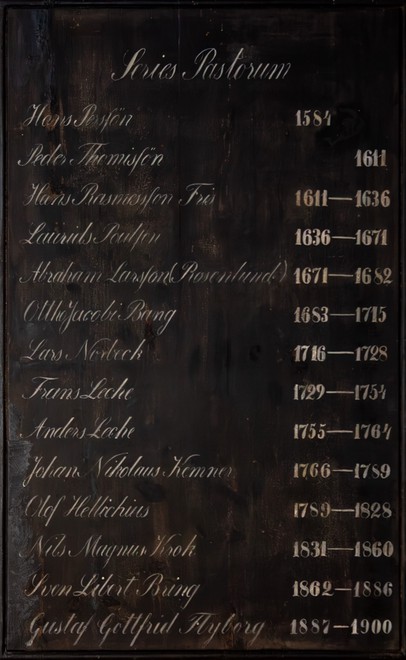 Series Pastorum
Hans Persjön 1584
Peder Thomisjön 1611
Hans Rasmusson Fris 1611—1636
Laurids Poulsen 1636—1671
Abraham Larsson (Rosenlund) 1671—1682
Otthe Jacobi Bang 1683—1715
Lars Norbeck 1716—1728
Frans Leche 1729—1754
Anders Leche 1755—1764
Johan Nikolaus Kemner 1766—1789
Olof Hellichius 1789—1828
Nils Magnus Krok 1831—1860
Sven Libert Bring 1862—1886
Gustaf Gottfrid Flyborg 1887—1900